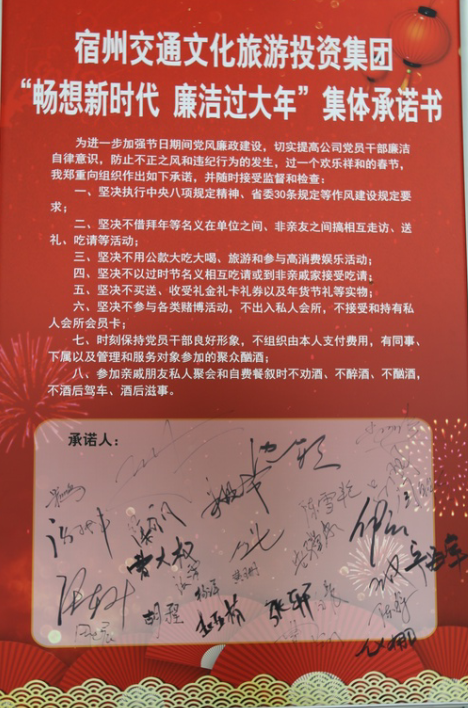 宿州交通文化旅游投资集团
“畅想新时代 廉洁过大年”集体承诺书
为进一步加强节日期间党风廉政建设，切实提高公司党员干部廉洁
自律意识，防止不正之风和违纪行为的发生，过一个欢乐祥和的春节，
我郑重向组织作出如下承诺，并随时接受监督和检查：
一、坚决执行中央八项规定精神、省委30条规定等作风建设规定要
求；
二、坚决不借拜年等名义在单位之间、非亲友之间搞相互走访、送
礼、吃请等活动；
三、坚决不用公款大吃大喝、旅游和参与高消费娱乐活动；
四、坚决不以过时节名义相互吃请或到非亲戚家接受吃请；
五、坚决不买送、收受礼金礼卡礼券以及年货节礼等实物；
六、坚决不参与各类赌博活动，不出入私人会所，不接受和持有私
人会所会员卡；
七、时刻保持党员干部良好形象，不组织由本人支付费用，有同事、
下属以及管理和服务对象参加的聚众酗酒。
八、参加亲戚朋友私人聚会和自费餐叙时不劝酒、不醉酒、不酗酒，
不酒后驾车、酒后滋事。
承诺人：
陈雪乾
曹大权
胡程
张轩